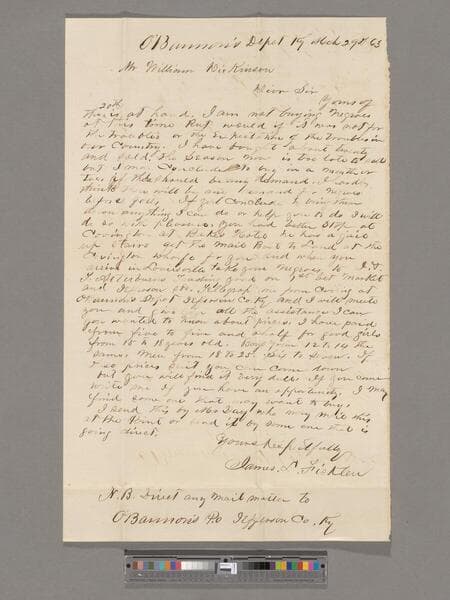 O'Bannon's Depot Ky Mch 29th 63
Mr William Dickinson
Dear Sir
Yours of
20th
is at hand. I am not buying Negroes
at this time But would if it was not for
the troubles or the of the troubles in
our Country. I have bought about twenty
and sold. The season now is too late to sell
but I may Conclude to buy in a month or
two if there should be any demand. I hardly
think there will be any demand for Negroes
before fall. If you Conclude to bring them
down anything I can do or help you to do I will
do so with pleasure. You had better stop at
Covington at Hotel he has a
up stairs get the Mail Boat to Land at the
Covington wharf for you and when you
arrive in Louisville take your Negroes to
T. Arterburns trading yard on 1st St Market
and Telegraph me from Covin at
O'Bannon's Depot Jefferson Co. Ky and I will meete
you and give you all the assistance I can
you wanted to know about prices. I have paid
from five to five and a half for good girls
from 15 to 18 years old. Boys from 12 to 14 the
same. Men from 18 to 25. Six to Seven. If
prices suit you you can come down
but you will find it very dull. If you come
write me if you have an oppertunity. I may
find some one that may want to buy.
I send this by Mr Day who may mail this
at the Point or send it by some one that is
going direct.
Yours Respectfully
James. L. Ficklen
N.B. Direct any mail matter to
O'Bannon's P.o Jefferson Co. Ky